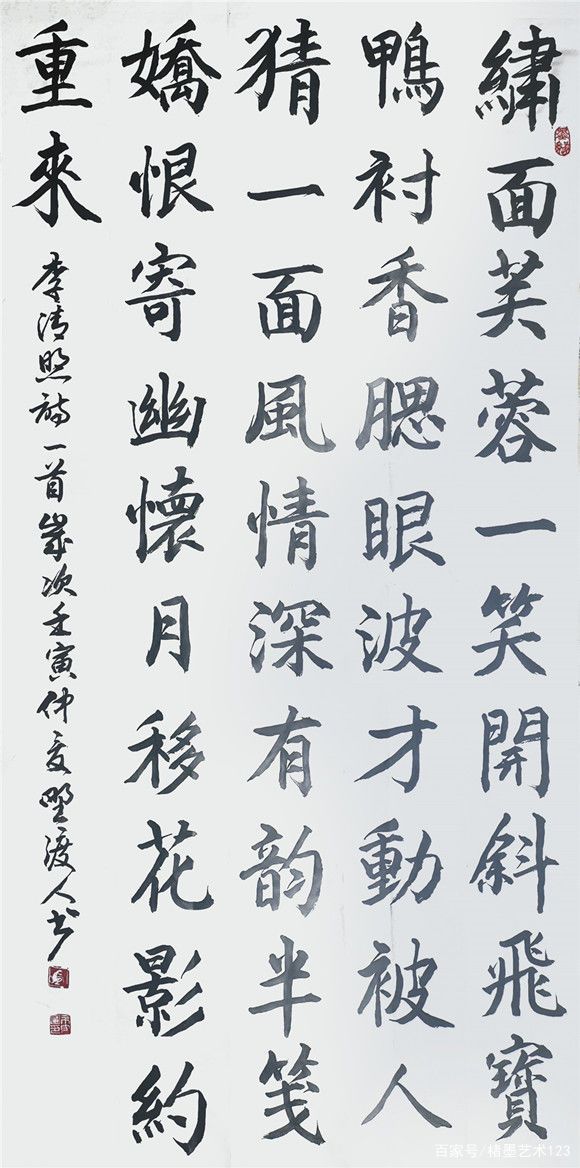 繡面芙蓉一笑開斜飛寶
鴨襯香腮眼波才動被人
猜一面風情深有韵半箋
嬌恨寄幽懷月移花影約
重來
李清照詩一首歲次壬寅仲夏野渡人书
百家号/楮墨艺术123